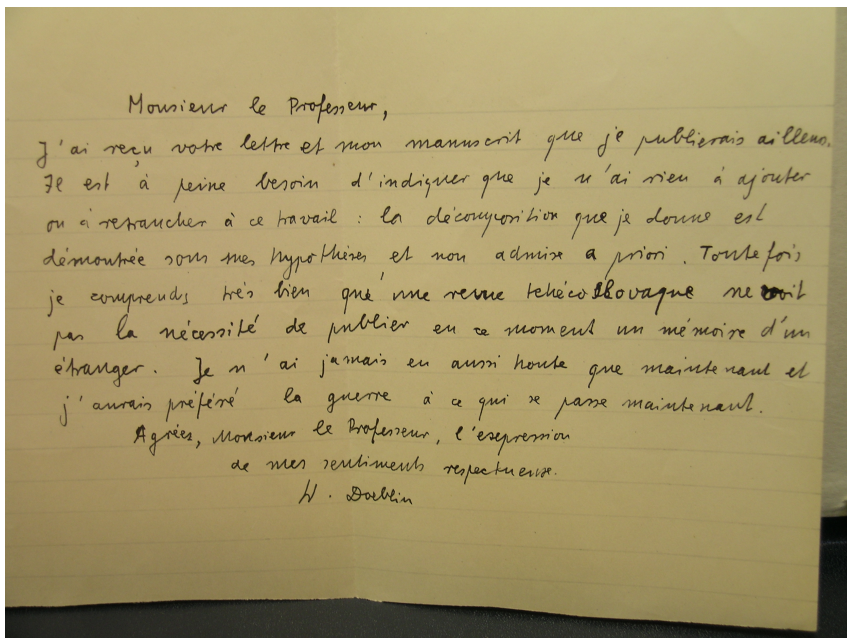 Monsieur le Professeur,
J'ai reçu votre lettre et mon manuscrit que je publierais ailleurs.
Il est à peine besoin d'indiquer que je n'ai rien à ajouter
ou à retrancher à ce travail : la décomposition que je donne est
démontrée sous mes hypothèses et non admise a priori. Toutefois
je comprends très bien qu'une revue tchécoslovaque ne voit
pas la nécessité de publier en ce moment un mémoire d'un
étranger. Je n'ai jamais eu aussi honte que maintenant et
j'aurais préféré la guerre à ce qui se passe maintenant.
Agrées, Monsieur le Professeur, l'expression
de mes sentiments respectueuse.
W. Doeblin